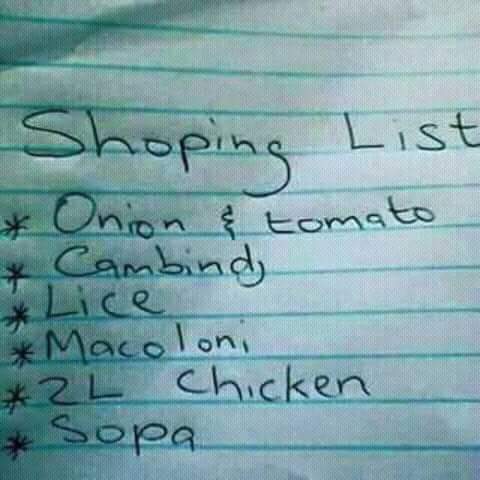 Shoping List
* Onion & tomato
* Cambindj
* Lice
* Macoloni
* 2L Chicken
* Sopa